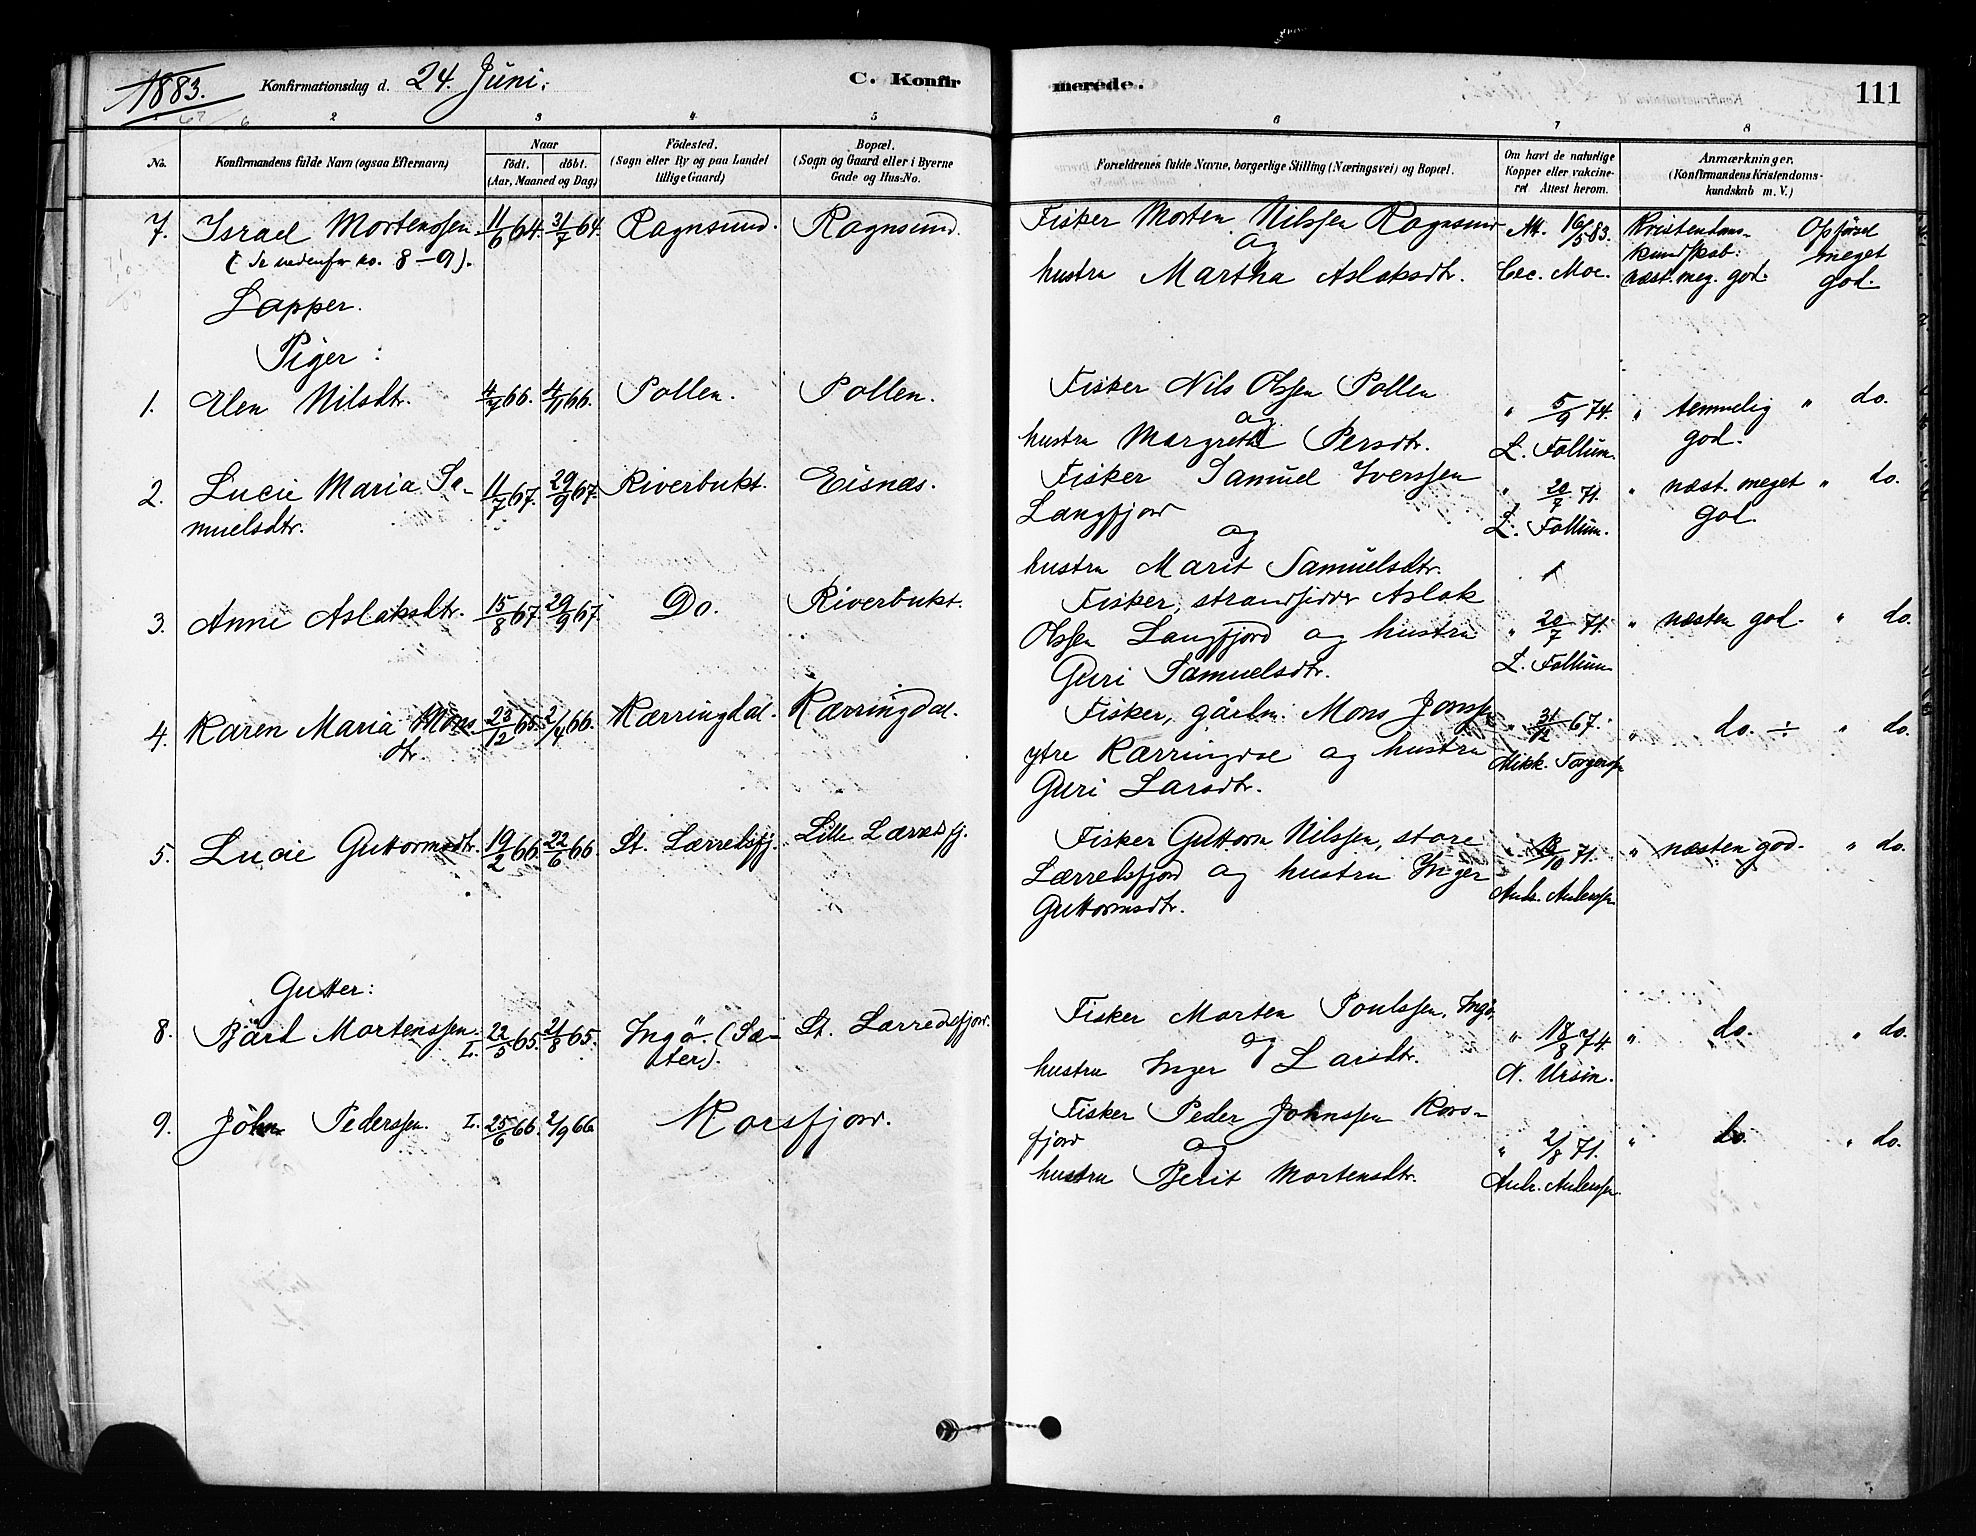 1883.
Konfirmationsdag d. 24. Juni.
C. Konfirmerede.
111
2 3 4 5 6 7 8
No.
Konfirmandens fulde Navn (ogsaa Efternavn)
Naar
født. døbt.
(Aar, Maaned og Dag)
Fødested.
(Sogn eller By og paa Landet
tillige Gaard)
Bopæl.
(Sogn og Gaard eller i Byerne
Gade og Hus-No.
Forældrenes fulde Navne, borgerlige Stilling (Næringsvei) og Bopæl.
Om havt de naturlige
Kopper eller vakcine-
ret Attest herom.
Anmærkninger.
(Konfirmandens Kristendoms-
kundskab m. V.)
7. Israel Mortenssen 11/6 64. 31/7 64. Ragnsund. Ragnsund.
(Se nedenfor no. 8-9).
Fisker Morten Nilssen Ragnsund
og
hustru Martha Aslaksdtr.
Att. 16/5 83.
Moe.
Kristendoms-
kundskab:
næst. meg. god.
Opførsel
meget
god.
Lapper.
Piger:
1. Elen Nilsdtr. 4/7 66. 4/11 66. Pollen. Pollen.
Fisker Nils Olssen Pollen
og
hustru Margrethe Persdtr.
" 5/9 74.
L. Follum.
" temmelig
god.
" do.
2. Lucie Maria Sa-
muelsdtr.
11/7 67. 29/9 67. Riverbukt. Eisnæs.
Fisker Samuel Iverssen
Langfjord
og
hustru Marit Samuelsdtr.
" 20/7 71.
L. Follum.
" næst. meget
god.
" do.
3. Anne Aslaksdtr. 15/8 67. 29/9 67. Do. Riverbukt.
Fisker, strandsidder Aslak
Olssen Langfjord og hustru
Guri Samuelsdtr.
" 20/7 71.
L. Follum
" næsten god. " do.
4. Karen Maria Mons-
dtr.
23/12 65. 2/4 66. Kærringdal. Kærringdal.
Fisker, gårdm. Mons Jonss.
ytre Kærringdal og hustru
Guri Larsdtr.
" 31/12 67.
Mikk. Torgerssen
" do. ÷ " do.
5. Lucie Guttormsdtr. 19/2 66. 22/6 66. St. Lærredsfj. Lille Lærredsfj.
Fisker Guttorm Nilssen, store
Lærredsfjord og hustru Inger
Guttormsdtr.
/10 71.
Andr. Anderssen
" næsten god. " do.
Gutter:
8. Bårl Mortenssen. L. 22/5 65. 2/8 65. Ingø. (Sæ-
ter).
St. Lærredsfjord.
Fisker Morten Poulssen, Ingø,
og
hustru Inger Larsdtr.
" 18/8 74.
A. Ursin.
" do. " do.
9. John Pederssen. L. 25/6 66. 2/9 66. Korsfjord.
Fisker Peder Johnssen Kors-
fjord
og
hustru Berit Mortensdtr.
" 2/8 71.
Andr. Anderssen
" do. " do.